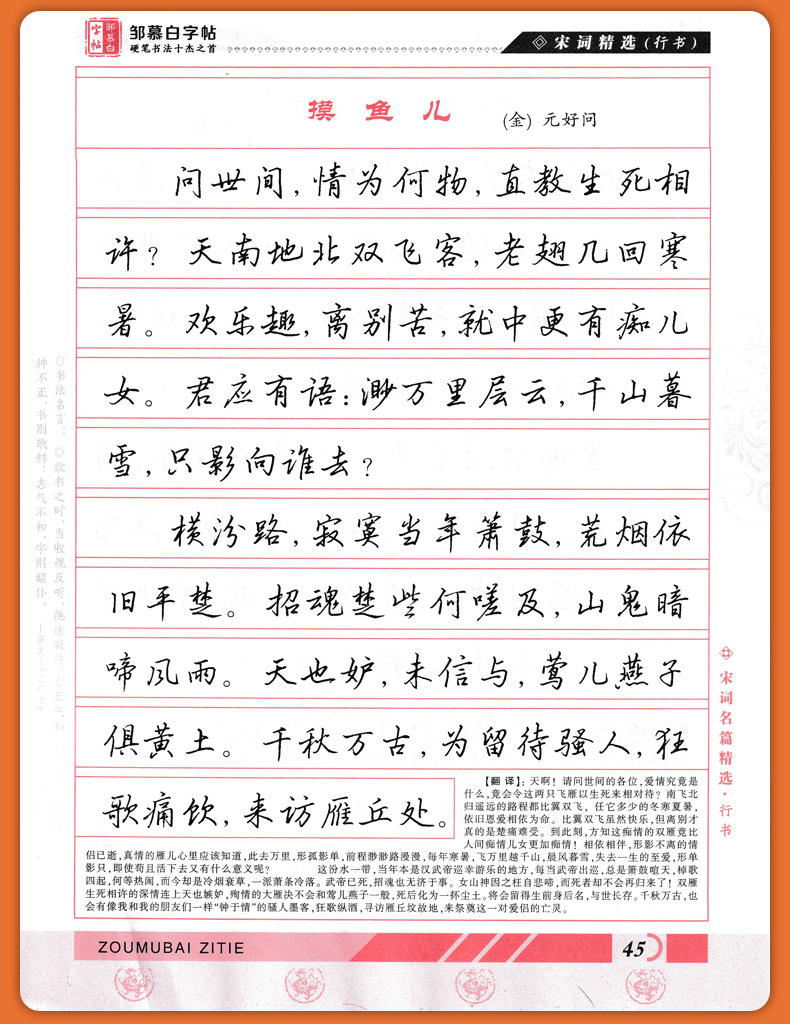 邹慕白字帖
邹慕白字帖
硬笔书法十杰之首
宋词精选(行书)
摸鱼儿
(金) 元好问
问世间,情为何物,直教生死相
许?天南地北双飞客,老翅几回寒
暑。欢乐趣,离别苦,就中更有痴儿
女。君应有语:渺万里层云,千山暮
雪,只影向谁去?
横汾路,寂寞当年箫鼓,荒烟依
旧平楚。招魂楚些何嗟及,山鬼暗
啼风雨。天也妒,未信与,莺儿燕子
俱黄土。千秋万古,为留待骚人,狂
歌痛饮,来访雁丘处。
【翻 译】:天啊!请问世间的各位,爱情究竟是
什么,竟会令这两只飞雁以生死来相对待?南飞北
归遥远的路程都比翼双飞,任它多少的冬寒夏暑,
依旧恩爱相依为命。比翼双飞虽然快乐,但离别才
真的是楚痛难受。到此刻,方知这痴情的双雁竟比
人间痴情儿女更加痴情!相依相伴,形影不离的情
侣已逝,真情的雁儿心里应该知道,此去万里,形孤影单,前程渺渺路漫漫,每年寒暑,飞万里越千山,晨风暮雪,失去一生的至爱,形单
影只,即使苟且活下去又有什么意义呢? 这汾水一带,当年本是汉武帝巡幸游乐的地方,每当武帝出巡,总是箫鼓喧天,棹歌
四起,何等热闹,而今却是冷烟衰草,一派萧条冷落。武帝已死,招魂也无济于事。女山神因之枉自悲啼,而死者却不会再归来了!双雁
生死相许的深情连上天也嫉妒,殉情的大雁决不会和莺儿燕子一般,死后化为一抔尘土。将会留得生前身后名,与世长存。千秋万古,也
会有像我和我的朋友们一样“钟于情”的骚人墨客,狂歌纵酒,寻访雁丘坟故地,来祭奠这一对爱侣的亡灵。
◎书法名言: ◎欲书之时,当收视反听,绝虑凝神,
神不正,书则欹斜;志气不和,字则颠仆。
宋词名篇精选·行书
ZOUMUBAI ZITIE
45